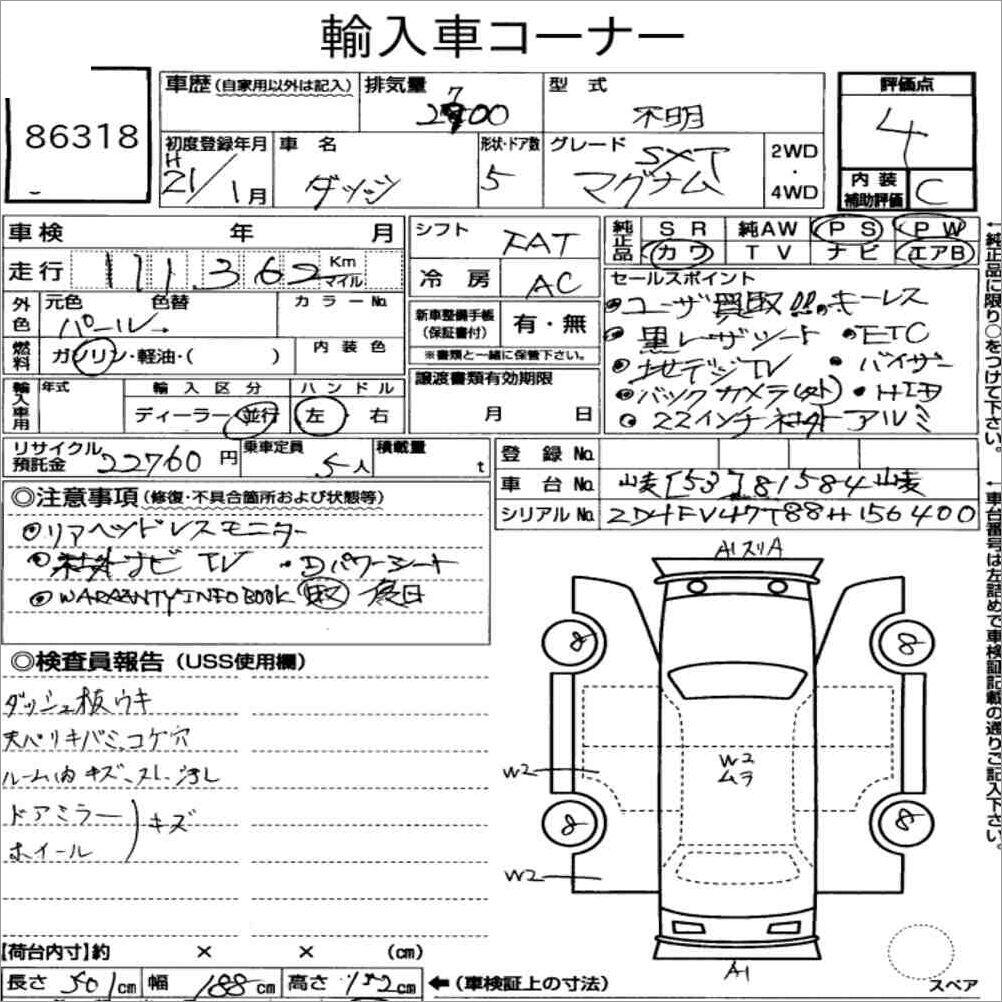 輸入車コーナー
86318
車歴(自家用以外は記入) 排気量 2700 型式 不明 評価点 4
初度登録年月 H21/1月 車名 ダッジ 形状・ドア数 5 グレード SXT マグナム 2WD・4WD 内装補助評価 C
車検 年 月
走行 111,362 Km マイル
シフト FAT
冷房 AC
純正品 SR 純AW PS PW
カワ TV ナビ エアB
外色 元色 パール 色替 カラーNo.
燃料 ガソリン・軽油・( ) 内装色
新車整備手帳(保証書付) 有・無
※書類と一緒に保管下さい。
輸入車用 年式 輸入区分 ハンドル
ディーラー・並行 左・右
譲渡書類有効期限
月 日
セールスポイント
●ユーザ買取!!●キーレス
●黒レザーシート ●ETC
●地デジTV ●バイザー
●バックカメラ(外) ●HID
●22インチ社外アルミ
リサイクル預託金 22760円 乗車定員 5人 積載量 t
登録No.
車台No. [53]81584
シリアルNo. 2D4FV47T88H156400
◎注意事項(修復・不具合箇所および状態等)
●リアヘッドレスモニター
●社外ナビ TV ●Dパワーシート
●WARRANTY INFO BOOK 取 後日
◎検査員報告(USS使用欄)
ダッシュ板ウキ
天パリキバミ、コゲ穴
ルーム内キズ、スレ、汚レ
ドアミラー
ホイール
キズ
A1スリA
8
8
W2
W2
ムラ
8
8
W2
A1
スペア
【荷台内寸】約 × × (cm)
長さ 501cm 幅 188cm 高さ 152cm ←(車検証上の寸法)
←純正品に限り○をつけて下さい。
←車台番号は左詰めで車検証記載の通りご記入下さい。